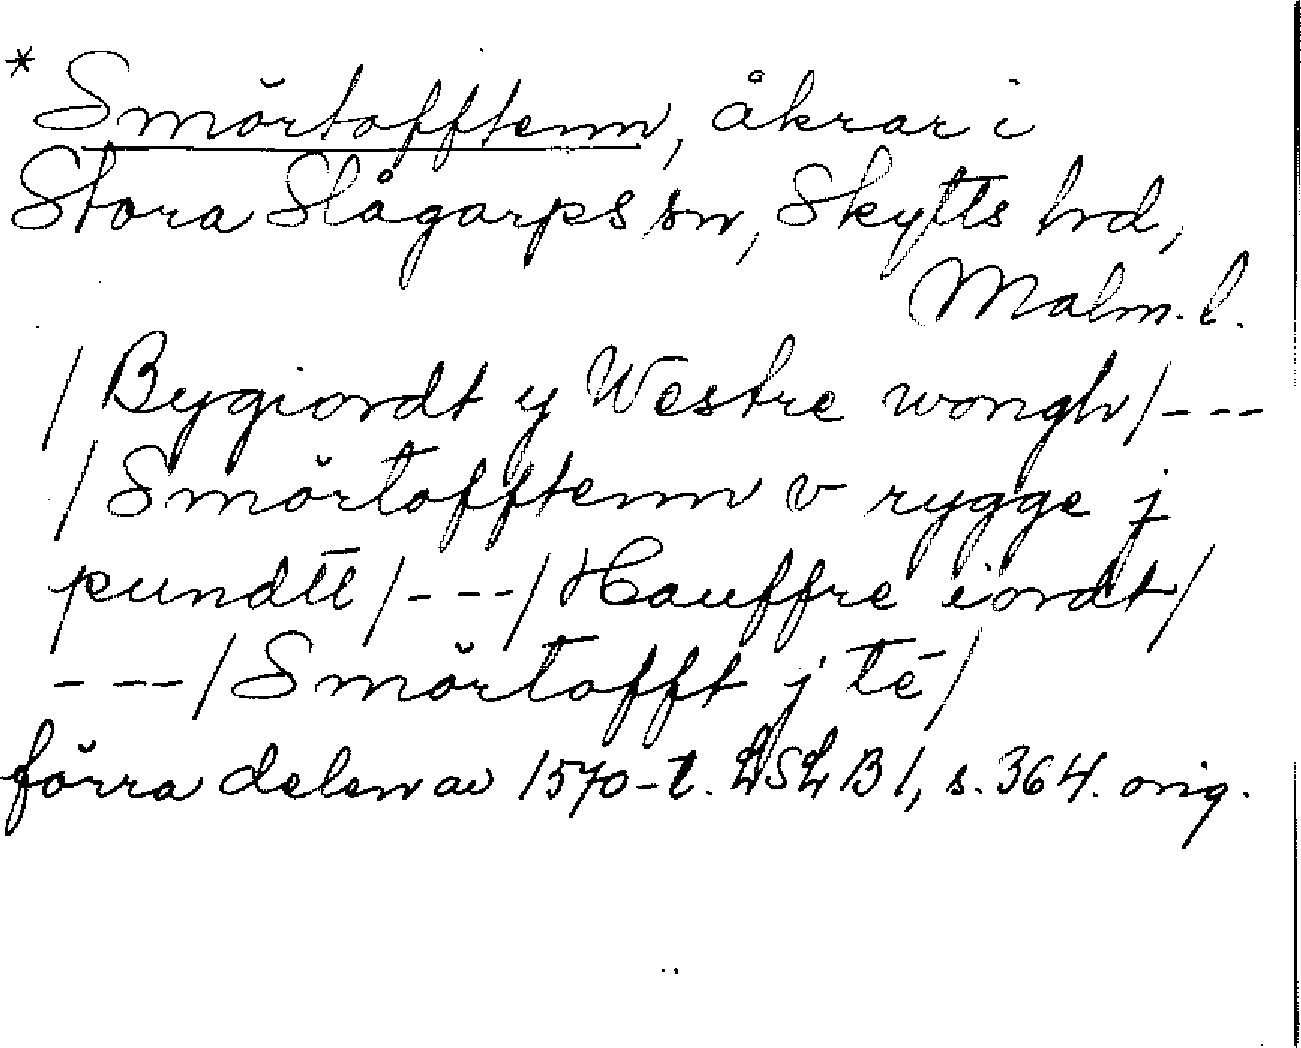 * Smörtofftenn, åkrar i
Stora Slågarps sn, Skytts hd,
Malm. l.
/ Bygiordt y Westre wongh / ---
/ Smörtofftenn v rygge j
pundtē / --- / Hauffre iordt /
--- / Smörtofft j tē /
förra delen av 1570-t. LSLB 1, s. 364. orig.